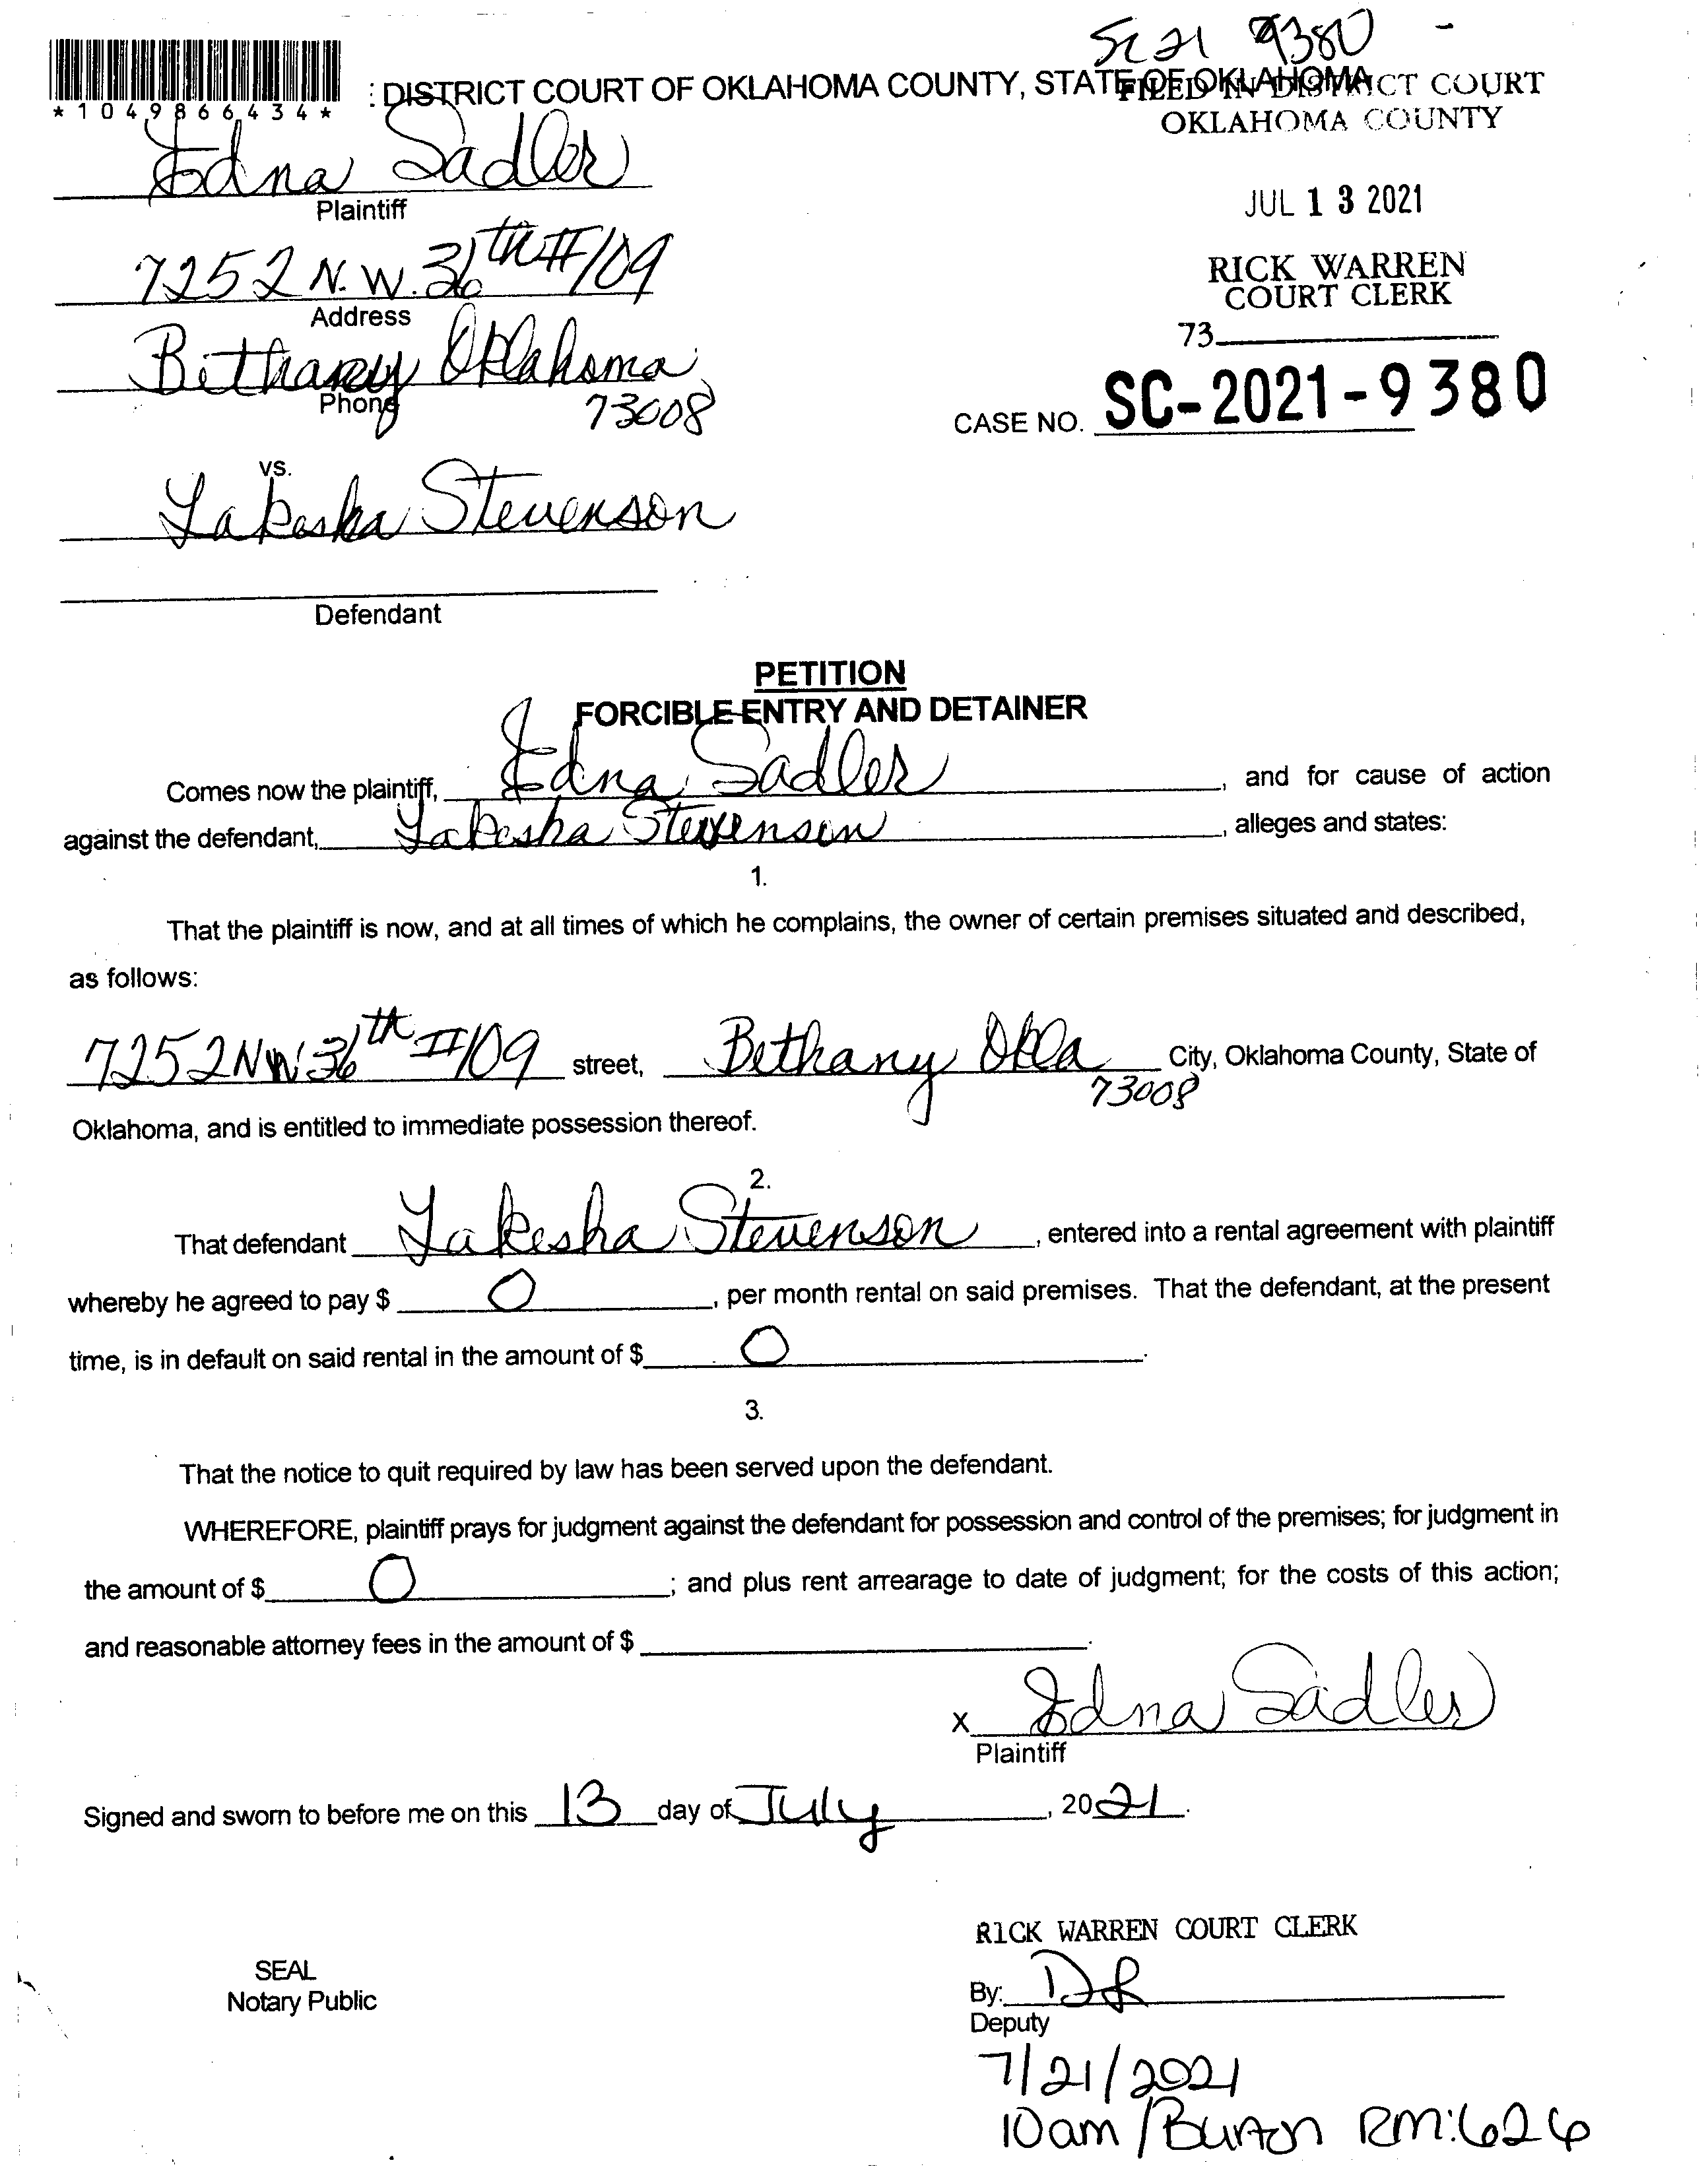 SC 21 9380
*1049866434*
: DISTRICT COURT OF OKLAHOMA COUNTY, STATE OF OKLAHOMA
FILED IN DISTRICT COURT
OKLAHOMA COUNTY
Edna Sadler
Plaintiff
JUL 13 2021
7252 N.W. 36th #109
Address
RICK WARREN
COURT CLERK
73
Bethany Oklahoma
Phone
73008
CASE NO. SC-2021-9380
vs.
Lakesha Stevenson
Defendant
PETITION
FORCIBLE ENTRY AND DETAINER
Comes now the plaintiff, Edna Sadler, and for cause of action
against the defendant, Lakesha Stevenson, alleges and states:
1.
That the plaintiff is now, and at all times of which he complains, the owner of certain premises situated and described,
as follows:
7252 NW 36th #109 street, Bethany Okla City, Oklahoma County, State of
73008
Oklahoma, and is entitled to immediate possession thereof.
2.
That defendant Lakesha Stevenson, entered into a rental agreement with plaintiff
whereby he agreed to pay $ 0, per month rental on said premises. That the defendant, at the present
time, is in default on said rental in the amount of $ 0.
3.
That the notice to quit required by law has been served upon the defendant.
WHEREFORE, plaintiff prays for judgment against the defendant for possession and control of the premises; for judgment in
the amount of $ 0; and plus rent arrearage to date of judgment; for the costs of this action;
and reasonable attorney fees in the amount of $ .
X Edna Sadler
Plaintiff
Signed and sworn to before me on this 13 day of July, 2021.
RICK WARREN COURT CLERK
SEAL
Notary Public
By: DR
Deputy
7/21/2021
10am/Burton RM:626